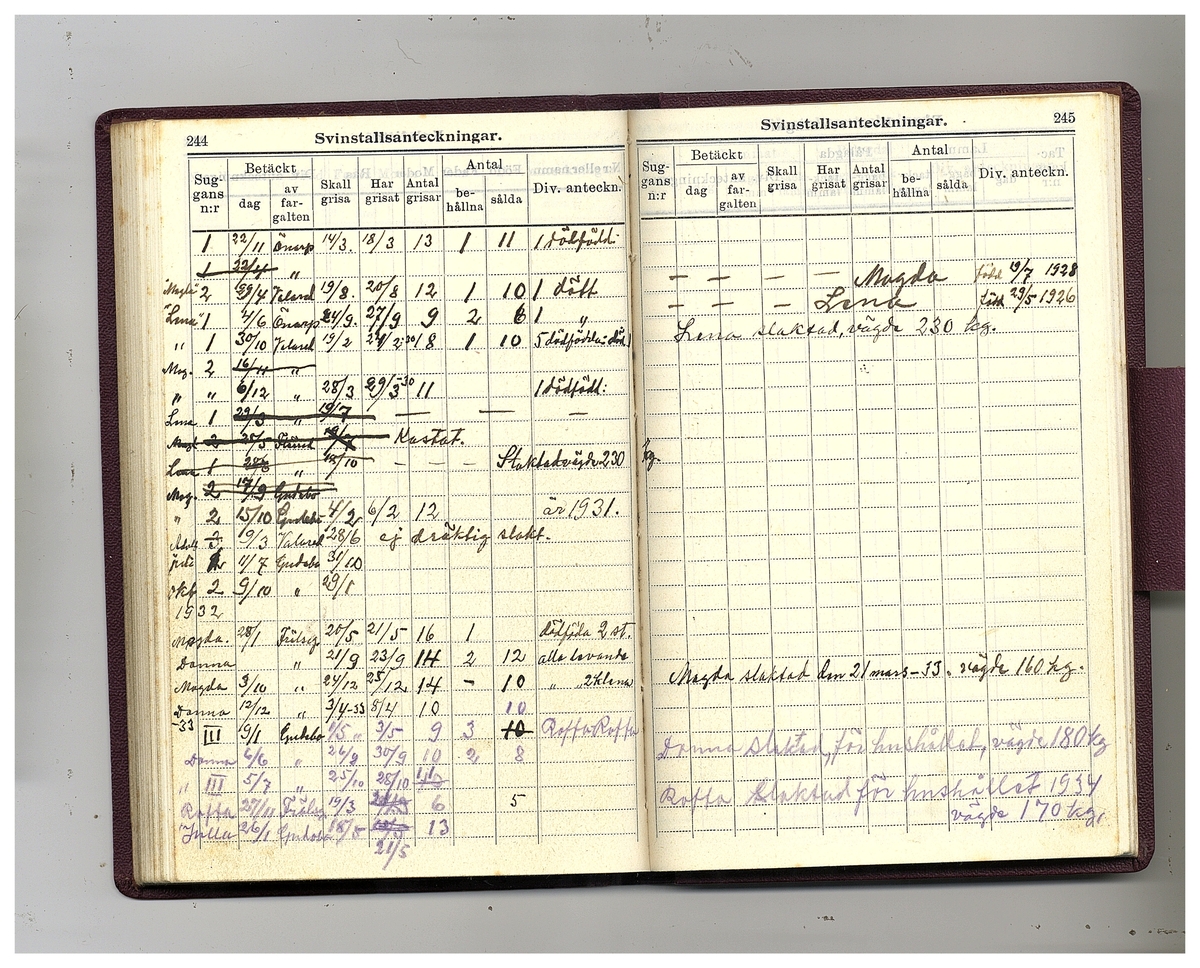 244
Svinstallsanteckningar.
Sug-gans n:r Betäckt dag av far-galten Skall grisa Har grisat Antal grisar Antal be-hållna sålda Div. anteckn.
1 22/11 Önarp 14/3. 18/3 13 1 11 1 dödfödd.
1 22/11 „
"Magda" 2 29/4 Valared 19/8. 20/8 12 1 10 1 dött
"Lena" 1 4/6 Önarp 24/9. 27/9 9 2 6 1 „
„ 1 30/10 Valared 19/2 18 1 10 5 dödfödda
Mag. 2 16/11 „
„ „ 6/12 „ 28/3 29/3-30 11 1 dödfödt:
Lena 1 29/3 „ 19/7 — — —
Magd 2 25/5 Kastat.
Lena 1 „ /10 - - - Slaktad vägde 230
Mag. 2 17/9 Gudebo
„ 2 15/10 Gudebo 4/2 6/2 12 är 1931.
19/3 Valared 28/6 ej dräktig slakt.
11/7 Gudebo 31/10
2 9/10 „ 29/1
1932
Magda. 28/1 20/5 21/5 16 1 dödföda 2 st.
Donna „ 21/9 23/9 14 2 12 alla levande
Magda 3/10 „ 24/12 25/12 14 - 10 „ „ 2 klena
Donna 12/12 „ 3/4-33 8/4 10 10
-33 III 9/1 Gudebo 1/5 „ 3/5 9 3 10 Roffa Roffa
Donna 6/6 „ 26/9 30/9 10 2 8
„ III 5/7 „ 25/10 28/10
Roffa 27/11 19/3 6 5
"Julla" 26/1 Gudebo 18/5 13
21/5
245
Svinstallsanteckningar.
Sug-gans n:r Betäckt dag av far-galten Skall grisa Har grisat Antal grisar Antal be-hållna sålda Div. anteckn.
— — — — Magda född 19/7 1928
— — — Lena född 29/5 1926
Lena slaktad, vägde 230 kg.
kg.
Magda slaktad den 21 mars -33. vägde 160 kg.
Donna slaktad, för hushållet, vägde 180 kg
Roffa slaktad för hushållet 1934
vägde 170 kg.